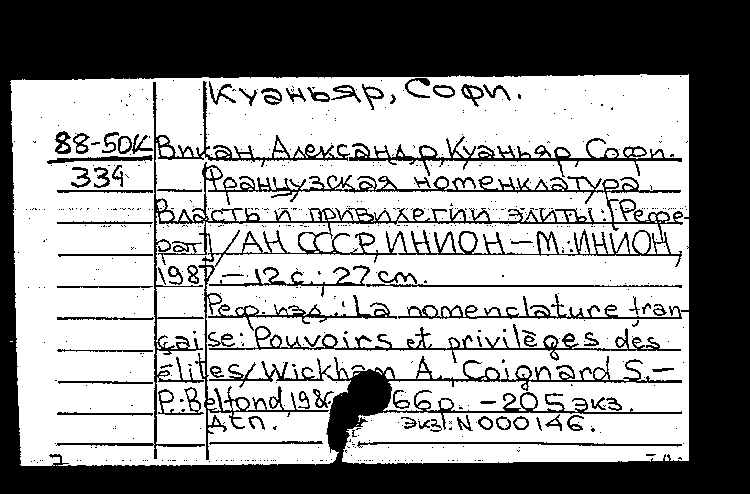 Куаньяр, Софи.
88-50К Викан, Александр, Куаньяр, Софи.
334 Французская номенклатура
Власть и привилегии элиты: [Рефе-
рат] / АН СССР, ИНИОН.—М.: ИНИОН,
1987.—12 с.; 27 cm.
Реф. изд.: La nomenclature fran-
çaise: Pouvoirs et privilèges des
élites/Wickham A., Coignard S.—
P.: Belfond, 1986 66 p. —205 экз.
экз.: N000146.